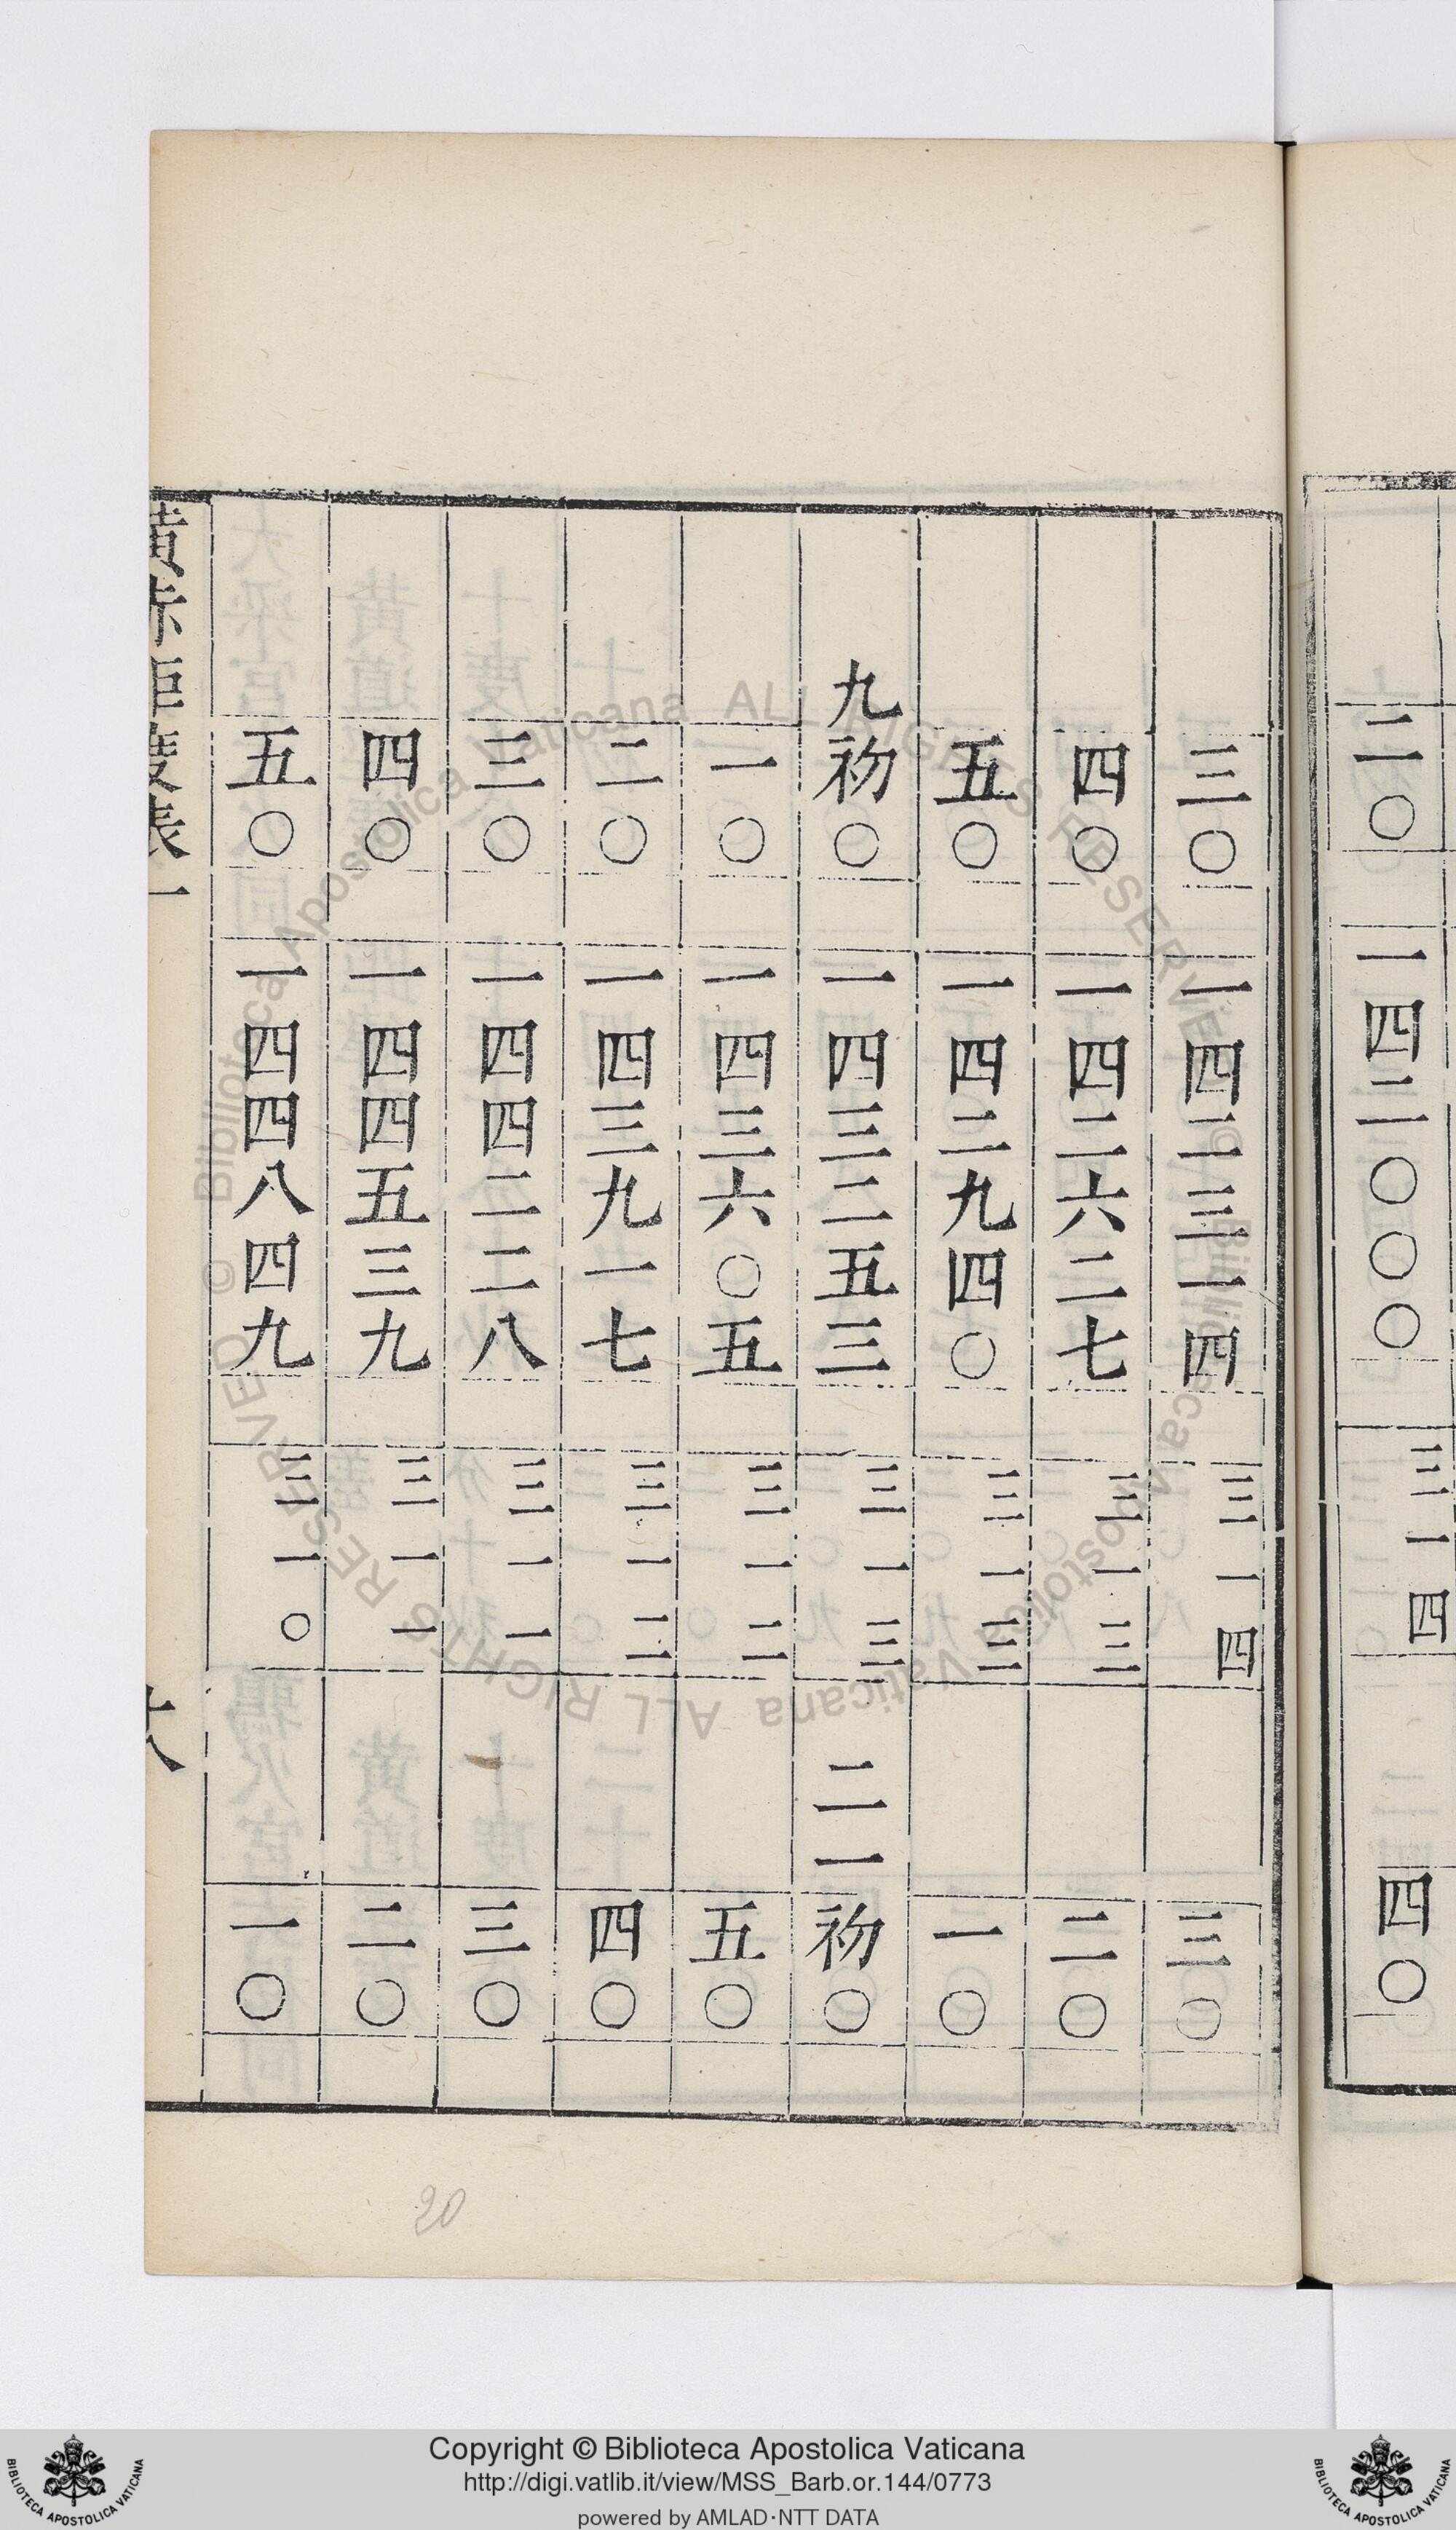 二〇 一四二〇〇〇 三一四 四〇
三〇 一四二三一四 三一四 三〇
四〇 一四二六二七 三一三 二〇
五〇 一四二九四〇 三一三 一〇
九 初〇 一四三二五三 三一三 二一 初〇
一〇 一四三六〇五 三一二 五〇
二〇 一四三九一七 三一二 四〇
三〇 一四四二二八 三一一 三〇
四〇 一四四五三九 三一一 二〇
五〇 一四四八四九 三一〇 一〇
黃赤距度表一
20
© Biblioteca Apostolica Vaticana ALL RIGHTS RESERVED © Biblioteca Apostolica Vaticana ALL RIGHTS RESERVED
BIBLIOTECA APOSTOLICA VATICANA
Copyright © Biblioteca Apostolica Vaticana
http://digi.vatlib.it/view/MSS_Barb.or.144/0773
powered by AMLAD·NTT DATA
BIBLIOTECA APOSTOLICA VATICANA